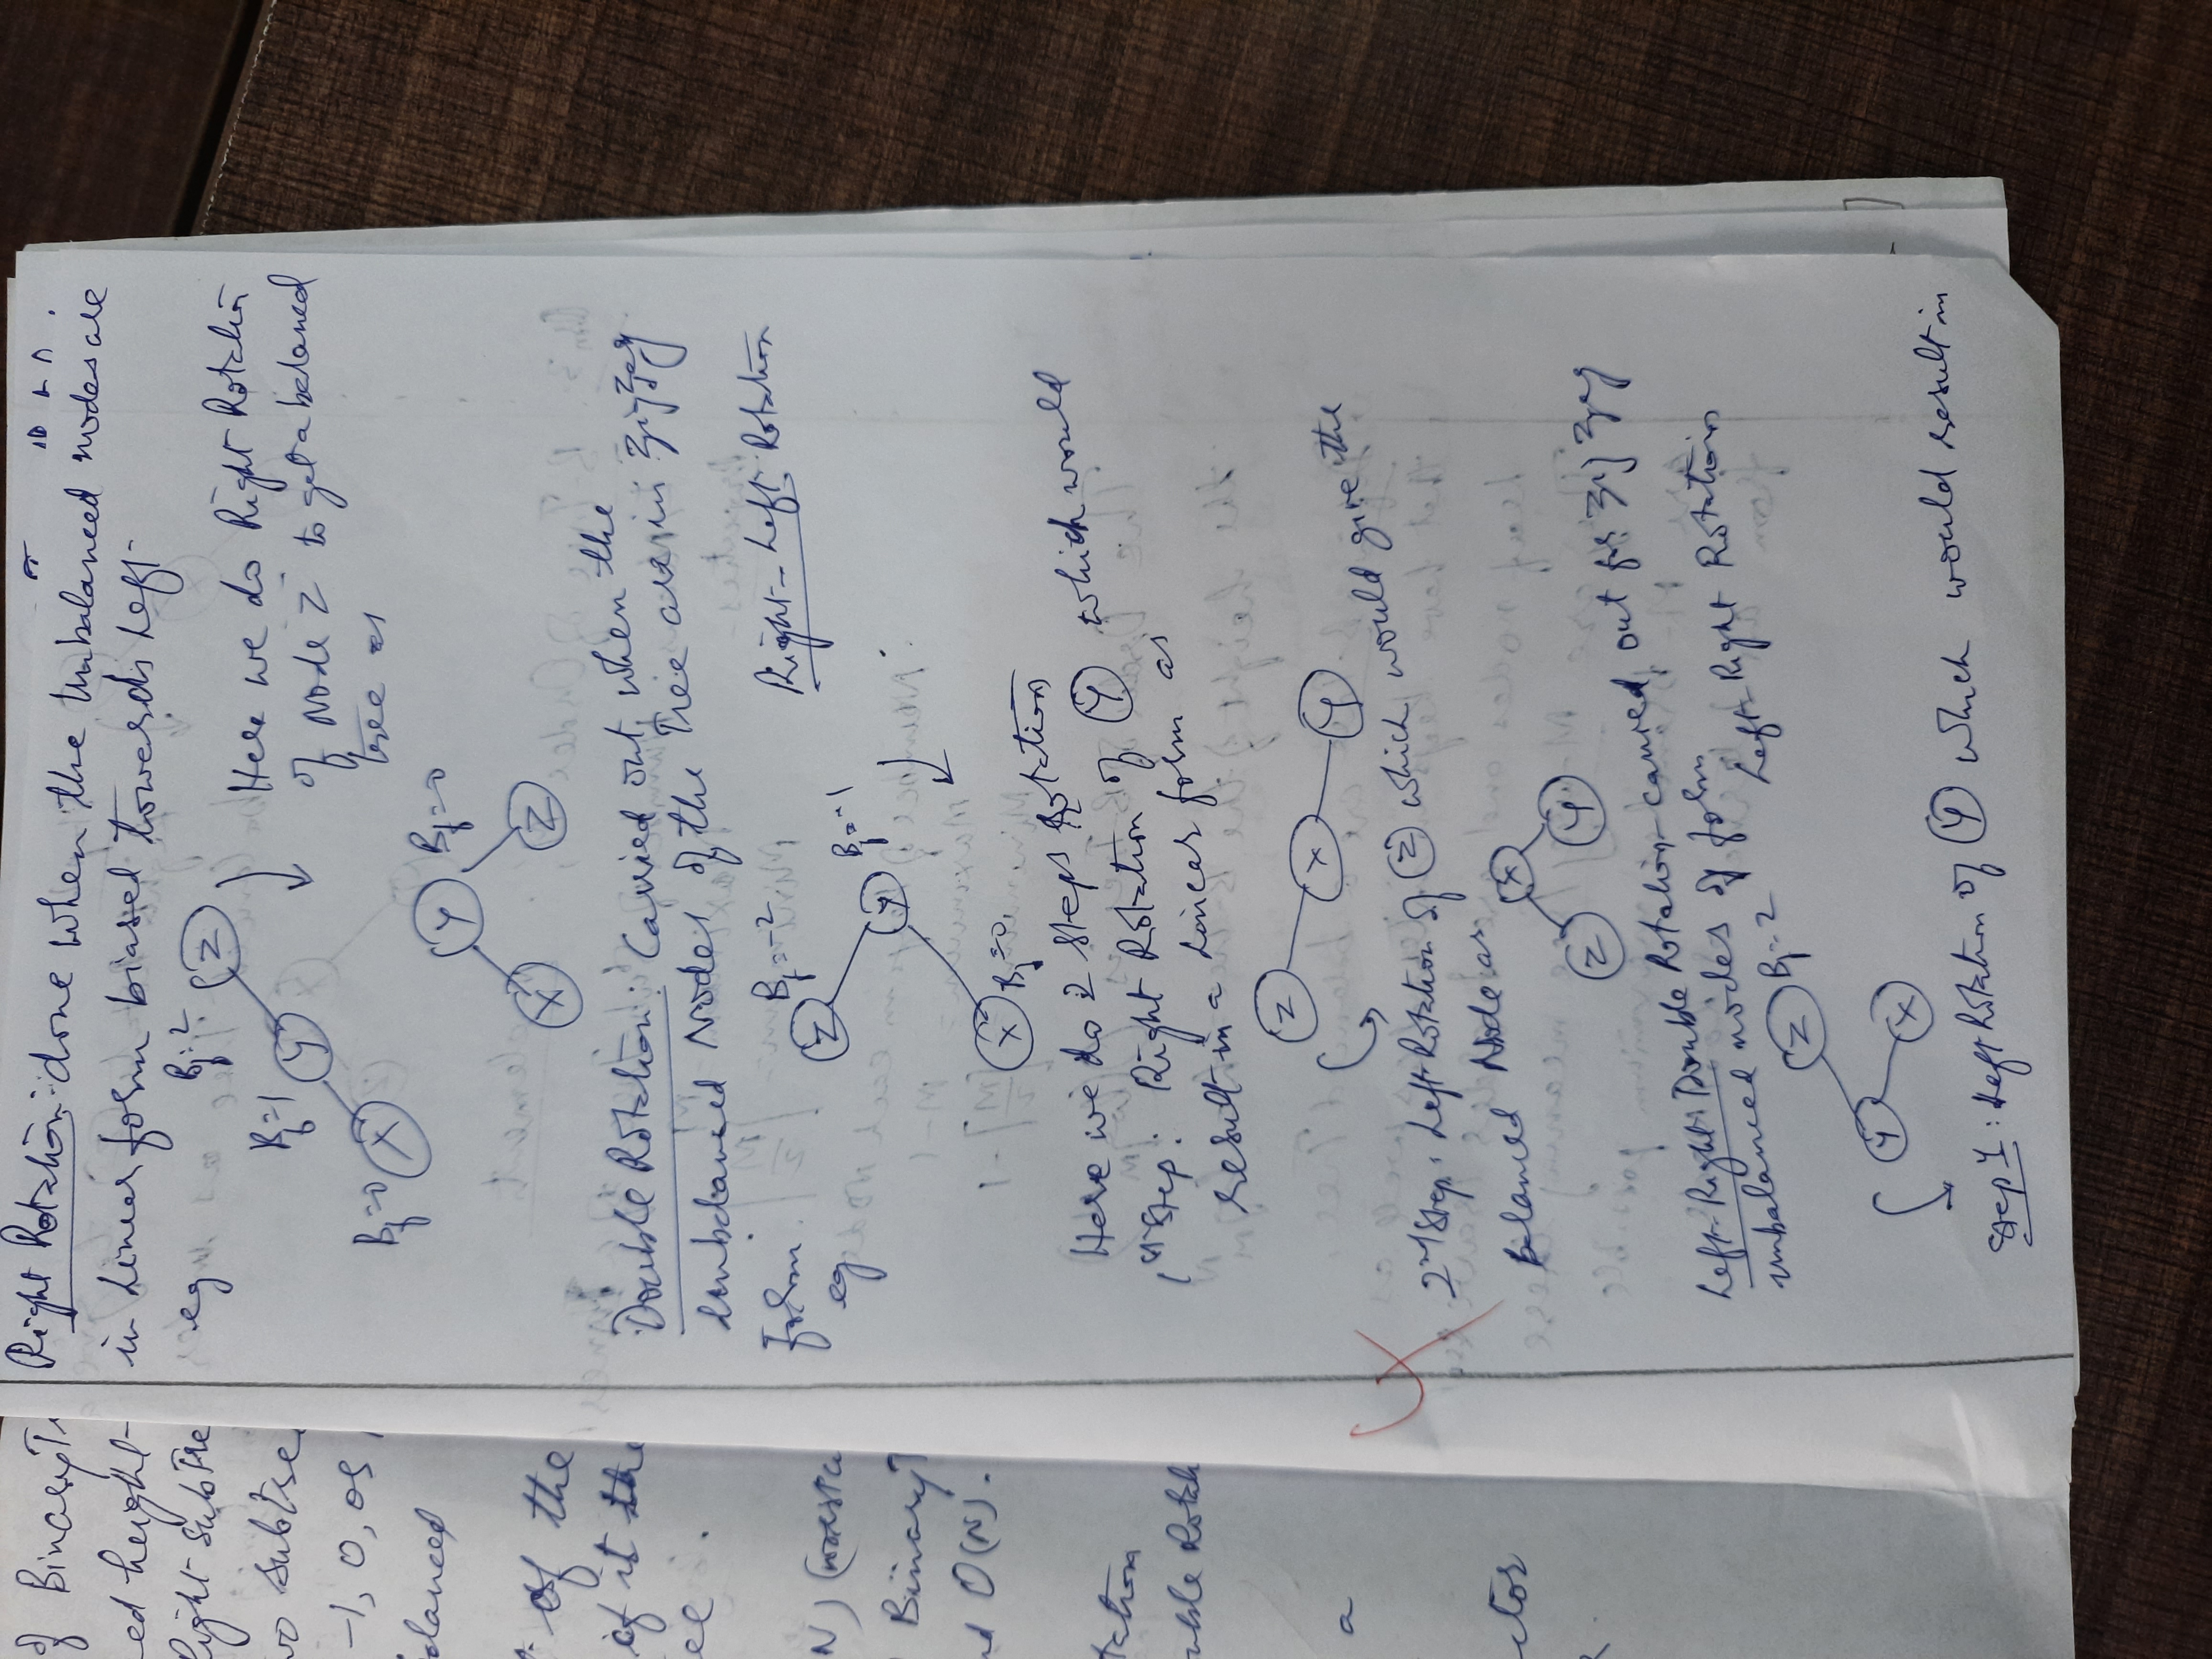 of Binary Tr
ed height
Right Subtre
wo subtre
-1, 0, or
balanced
of the
if it the
ee .
N) (worst ca
Binary T
nd O(N).
tation
uble Rotati
a
ctor
Right Rotation :- done when the Unbalanced nodes are
in Linear form biased towards Left
eg
Bf=2
Z
Here we do Right Rotation
of Node Z to get a balanced
tree as
Bf=1
Y
Bf=0
X
Y
Bf=0
X
Z
Double Rotation : Carried out when the
Unbalanced Nodes of the Tree are in Zig Zag
form.
eg
Right-Left Rotation
Bf=-2
Z
Y
Bf=-1
X
Bf=0
Here we do 2 Steps Rotation
1st Step : Right Rotation of Y which would
result in a Linear form as
Z
X
Y
2nd Step : Left Rotation of Z which would give the
Balanced Node as
X
Z
Y
Left-Right Double Rotation - carried out for Zig Zag
unbalanced nodes of form
Left-Right Rotation
Z
Bf=2
Y
X
Step 1 : Left Rotation of Y which would result in